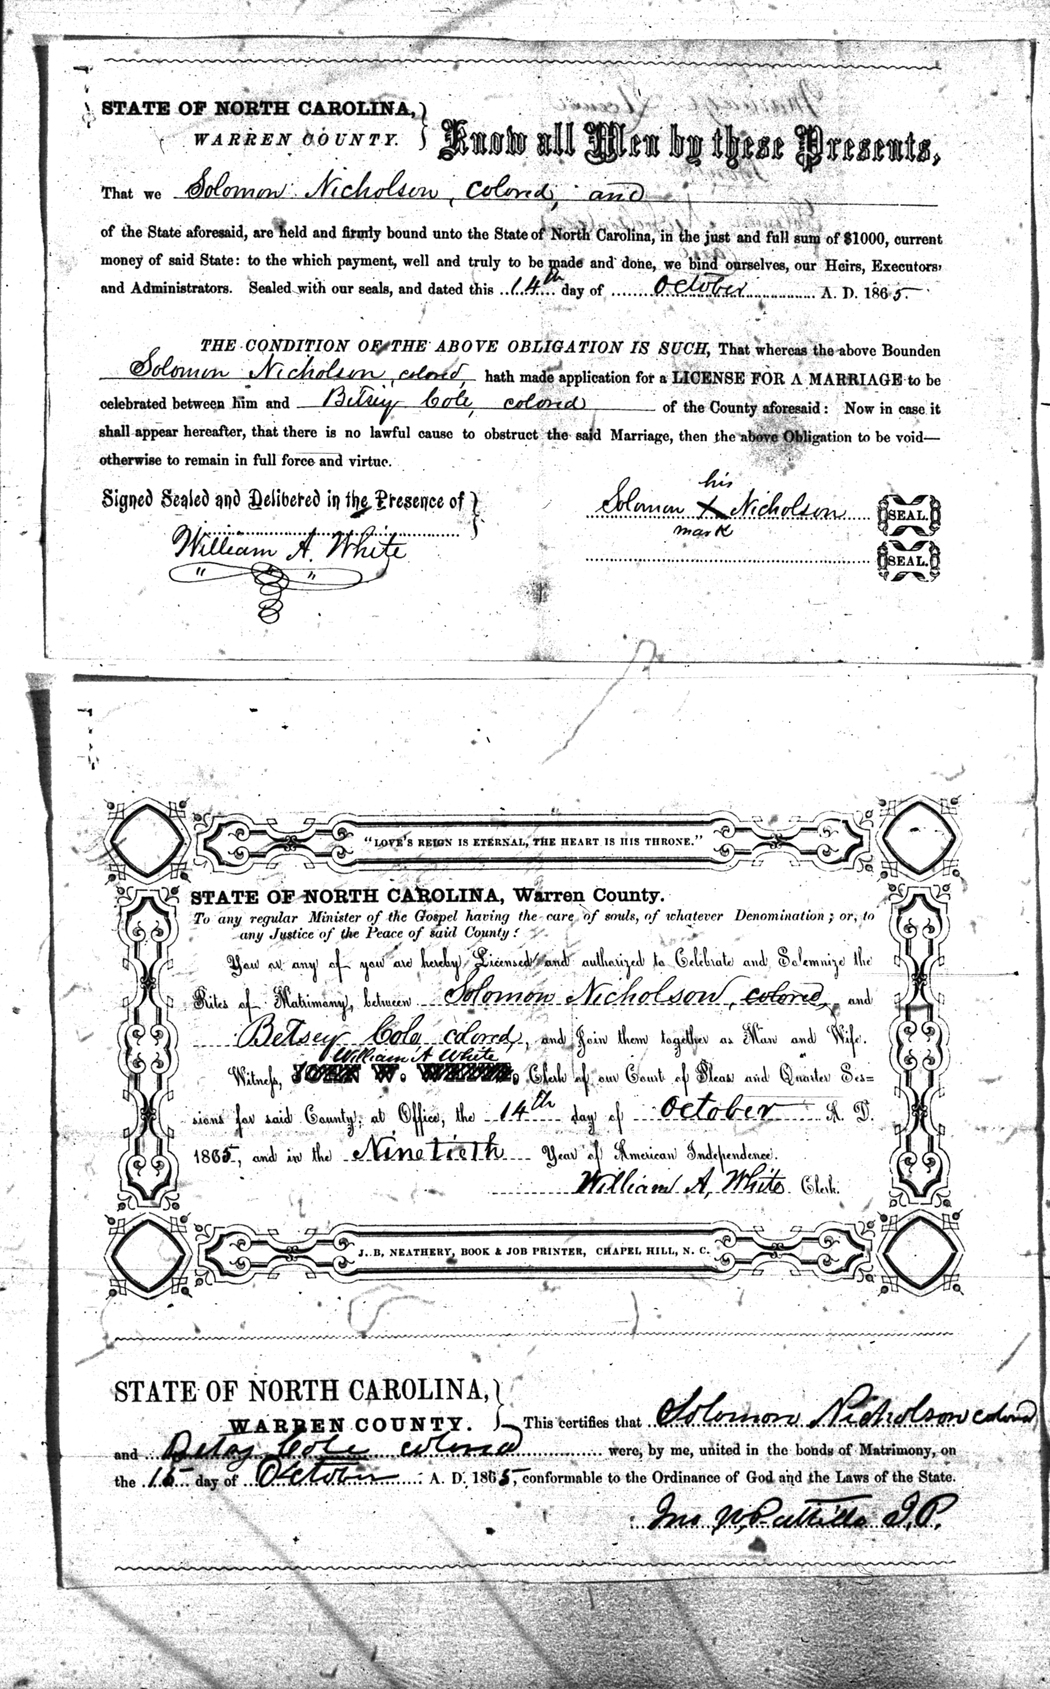 STATE OF NORTH CAROLINA,
WARREN COUNTY.
Know all Men by these Presents,
That we Solomon Nicholson, colored, and
of the State aforesaid, are held and firmly bound unto the State of North Carolina, in the just and full sum of $1000, current
money of said State: to the which payment, well and truly to be made and done, we bind ourselves, our Heirs, Executors,
and Administrators. Sealed with our seals, and dated this 14th day of October A. D. 1865.
THE CONDITION OF THE ABOVE OBLIGATION IS SUCH, That whereas the above Bounden
Solomon Nicholson, colored, hath made application for a LICENSE FOR A MARRIAGE to be
celebrated between him and Betsey Cole, colored of the County aforesaid: Now in case it
shall appear hereafter, that there is no lawful cause to obstruct the said Marriage, then the above Obligation to be void—
otherwise to remain in full force and virtue.
Signed Sealed and Delibered in the Presence of
William A. White
his
Solomon X Nicholson SEAL.
mark
SEAL.
"LOVE'S REIGN IS ETERNAL, THE HEART IS HIS THRONE."
STATE OF NORTH CAROLINA, Warren County.
To any regular Minister of the Gospel having the care of souls, of whatever Denomination; or, to
any Justice of the Peace of said County:
You or any of you are hereby Licensed and authorized to Celebrate and Solemnize the
Rites of Matrimony, between Solomon Nicholson, colored, and
Betsey Cole colored, and Join them together as Man and Wife.
William A White
Witness, JOHN W. WHITE, Clerk of our Court of Pleas and Quarter Ses=
sions for said County, at Office, the 14th day of October A. D.
1865, and in the Ninetieth Year of American Independence.
William A, White Clerk.
J. B. NEATHERY, BOOK & JOB PRINTER, CHAPEL HILL, N. C.
STATE OF NORTH CAROLINA,
WARREN COUNTY.
This certifies that Solomon Nicholson colored
and Betsy Cole colored were, by me, united in the bonds of Matrimony, on
the 15 day of October A. D. 1865, conformable to the Ordinance of God and the Laws of the State.
Jno W Pattillo J. P.